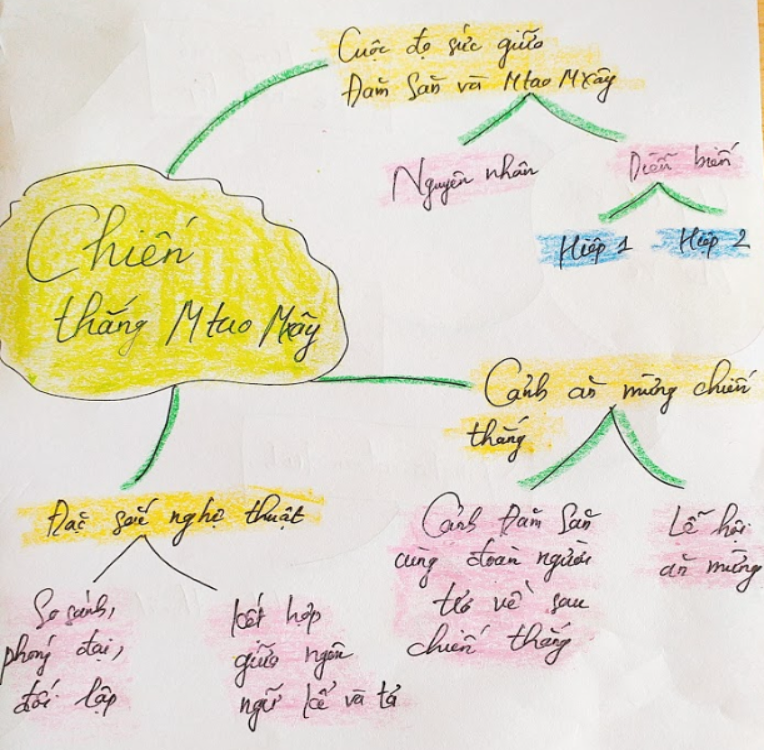 Cuộc đọ sức giữa
Đăm Săn và Mtao Mxây
Nguyên nhân
Diễn biến
Hiệp 1
Hiệp 2
Chiến
thắng Mtao Mxây
Cảnh ăn mừng chiến
thắng
Cảnh Đăm Săn
cùng đoàn người
trở về sau
chiến thắng
Lễ hội
ăn mừng
Đặc sắc nghệ thuật
So sánh,
phóng đại,
đối lập
Kết hợp
giữa ngôn
ngữ kể và tả